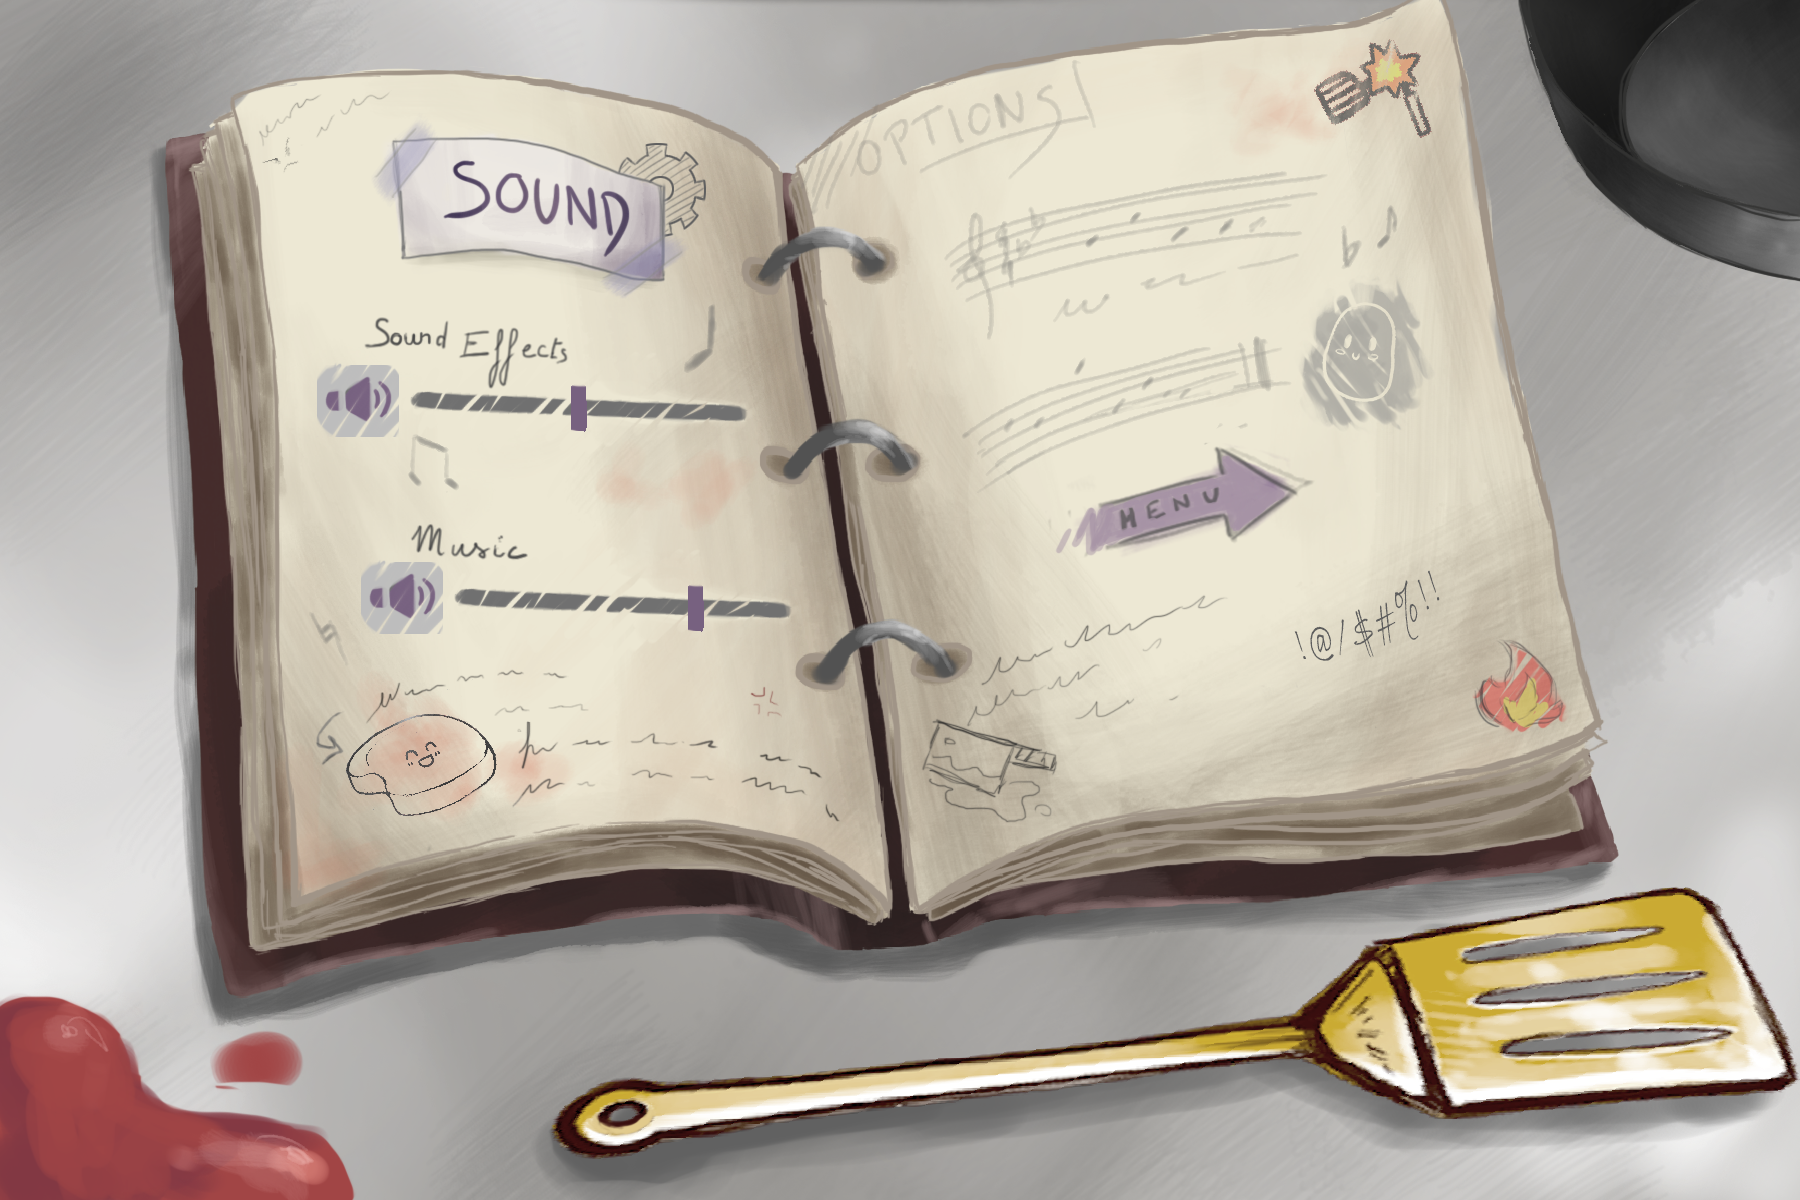 SOUND
Sound Effects
Music
OPTIONS
MENU
!@/$#%!!